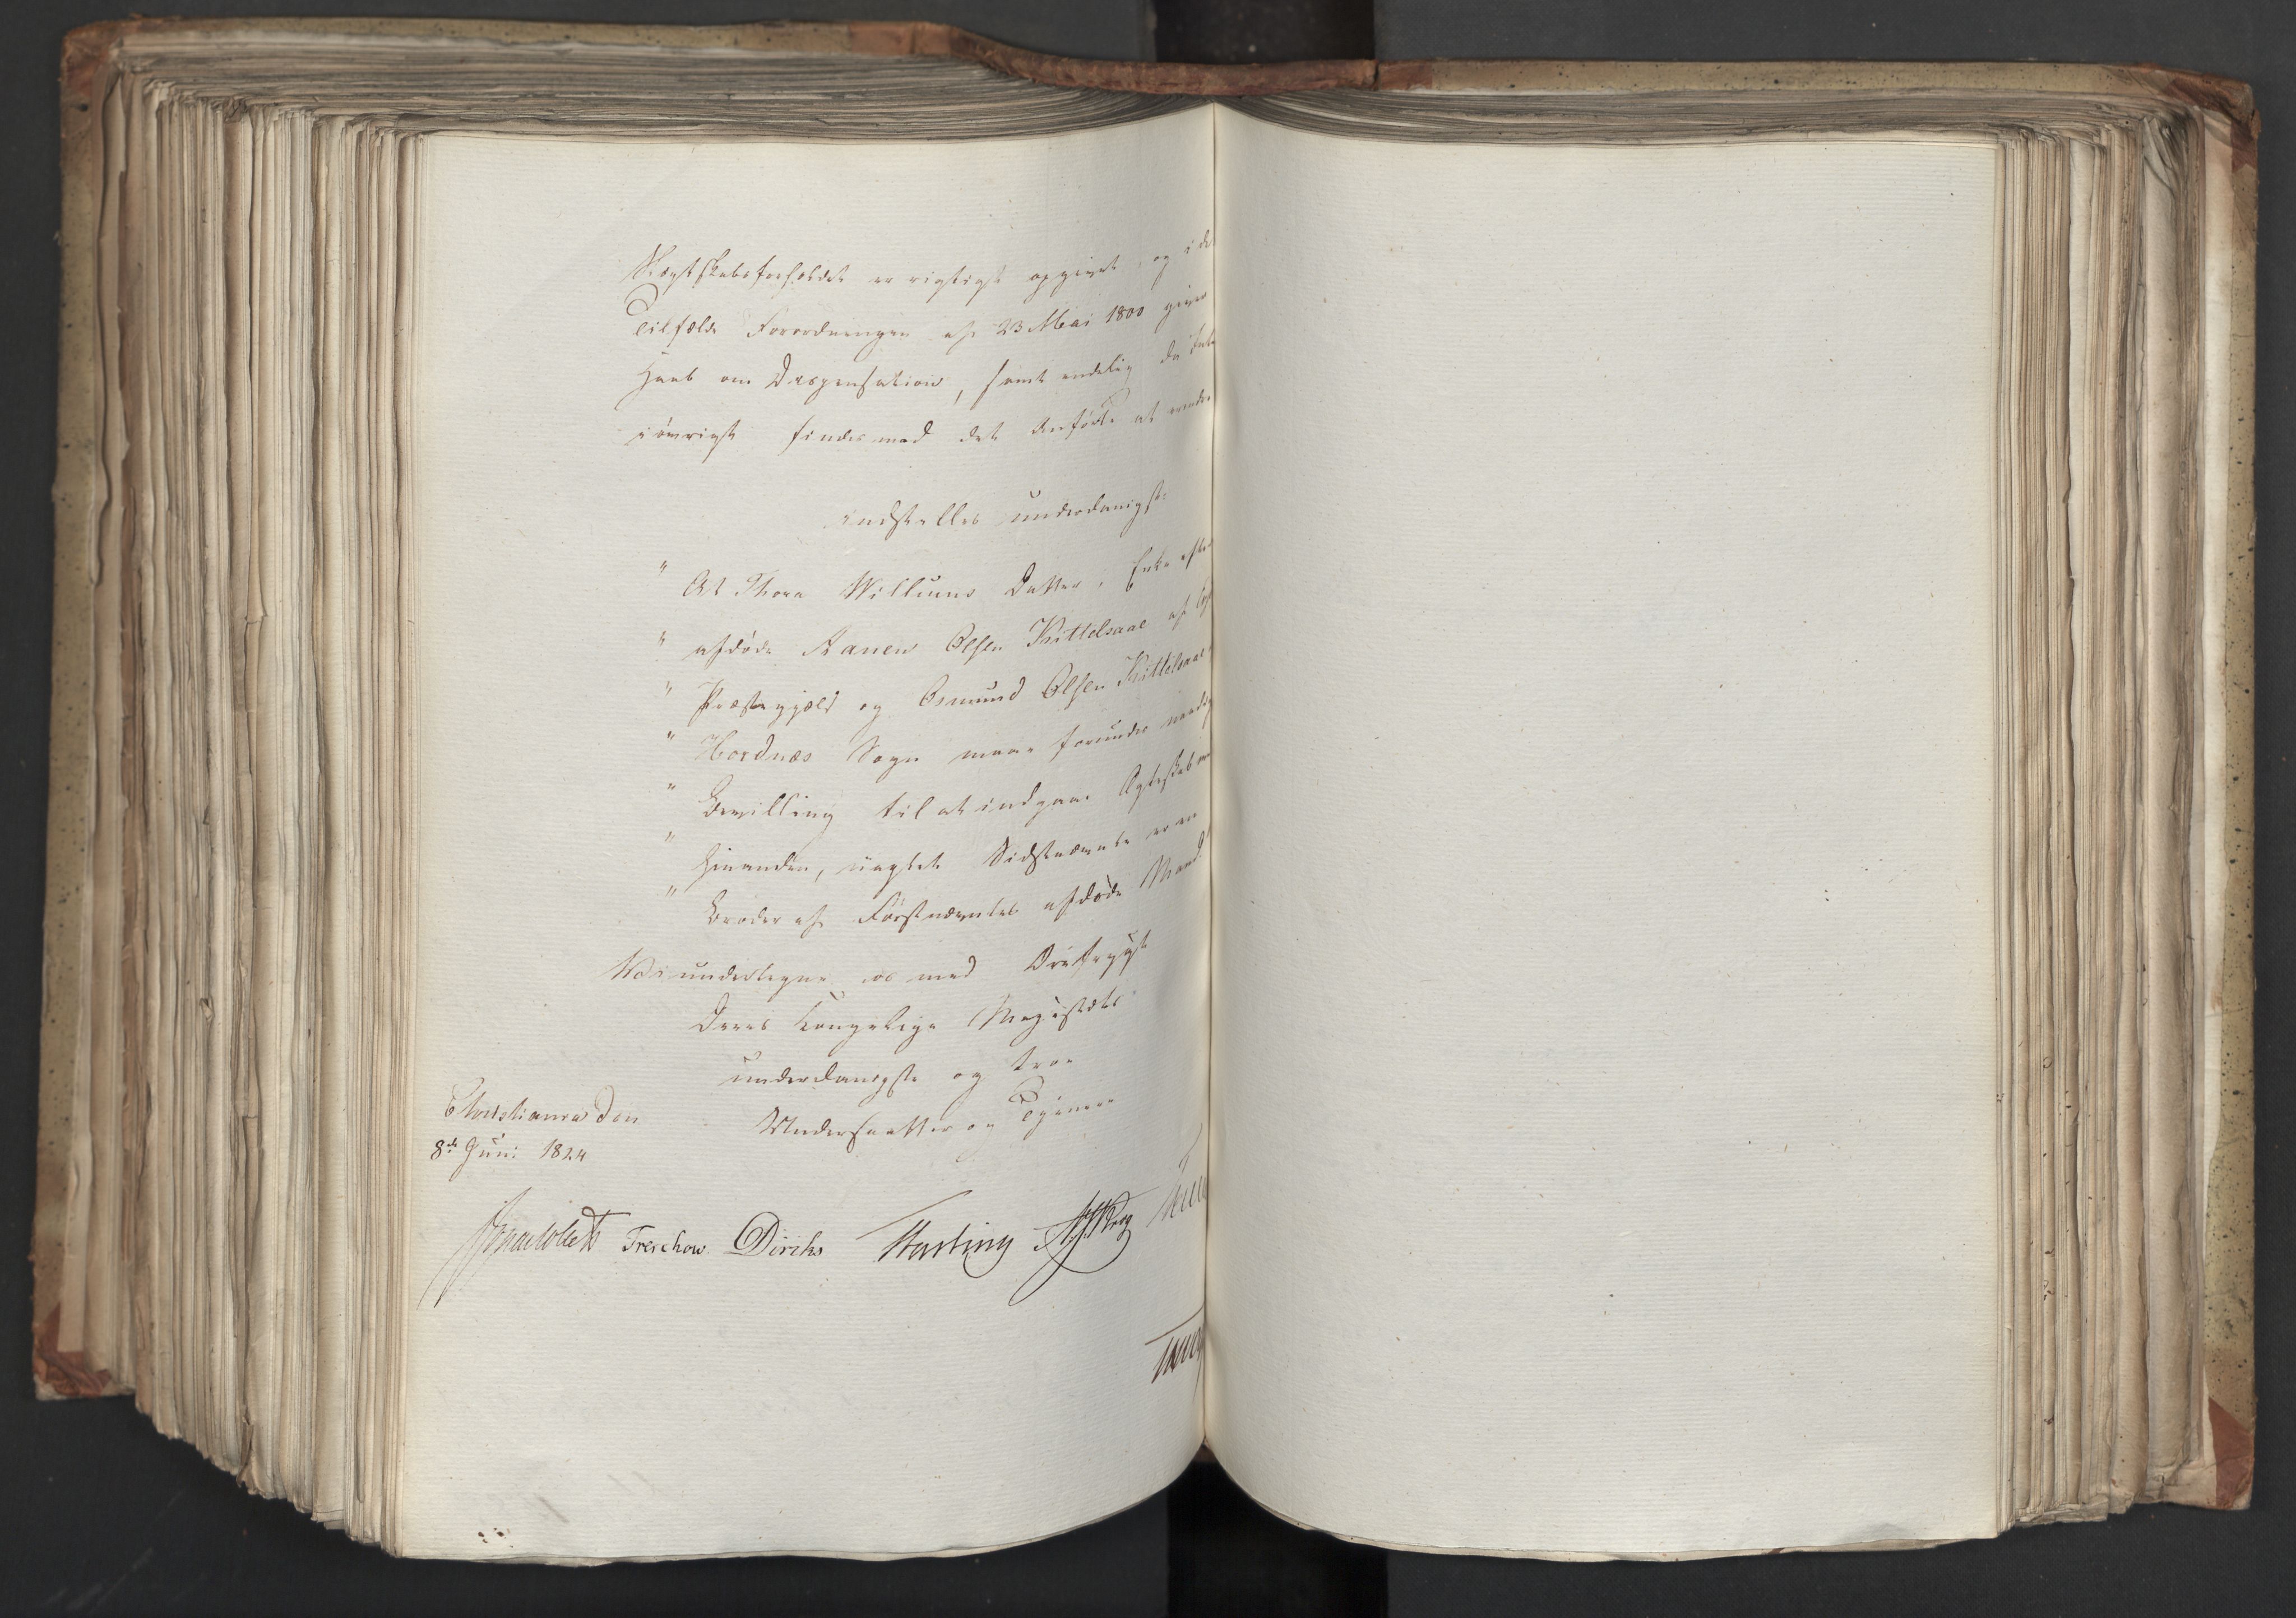 Slægtskabsforholdet er rigtigt opgivet, og i de
Tilfælde Forordningen af 23 Mai 1800 giver
Haab om Dispensation, samt endelig da Intet
iøvrigt findes mod det Anførte at erindre
indstilles underdanigst:
" At Thore Willums Datter, Enke efter
" afdøde Aanen Olsen Kittelsaae af
" Præstegjæld og Osmund Olsen Kittelsaae
" Hordnæs Sogn maae forundes naadigst
" Bevilling til at indgaae Ægteskab med
" Hinanden, uagtet Sidstnævnte er en
" Broder af Førstnævntes afdøde Mand.
Vi undertegne os med Ærefrygt
Deres Kongelige Majestæts
underdanigste og troe
Undersaatter og Tjenere
Christiania den
8de Juni 1824
Jonas Collett Treschow Diriks Hasting Krog